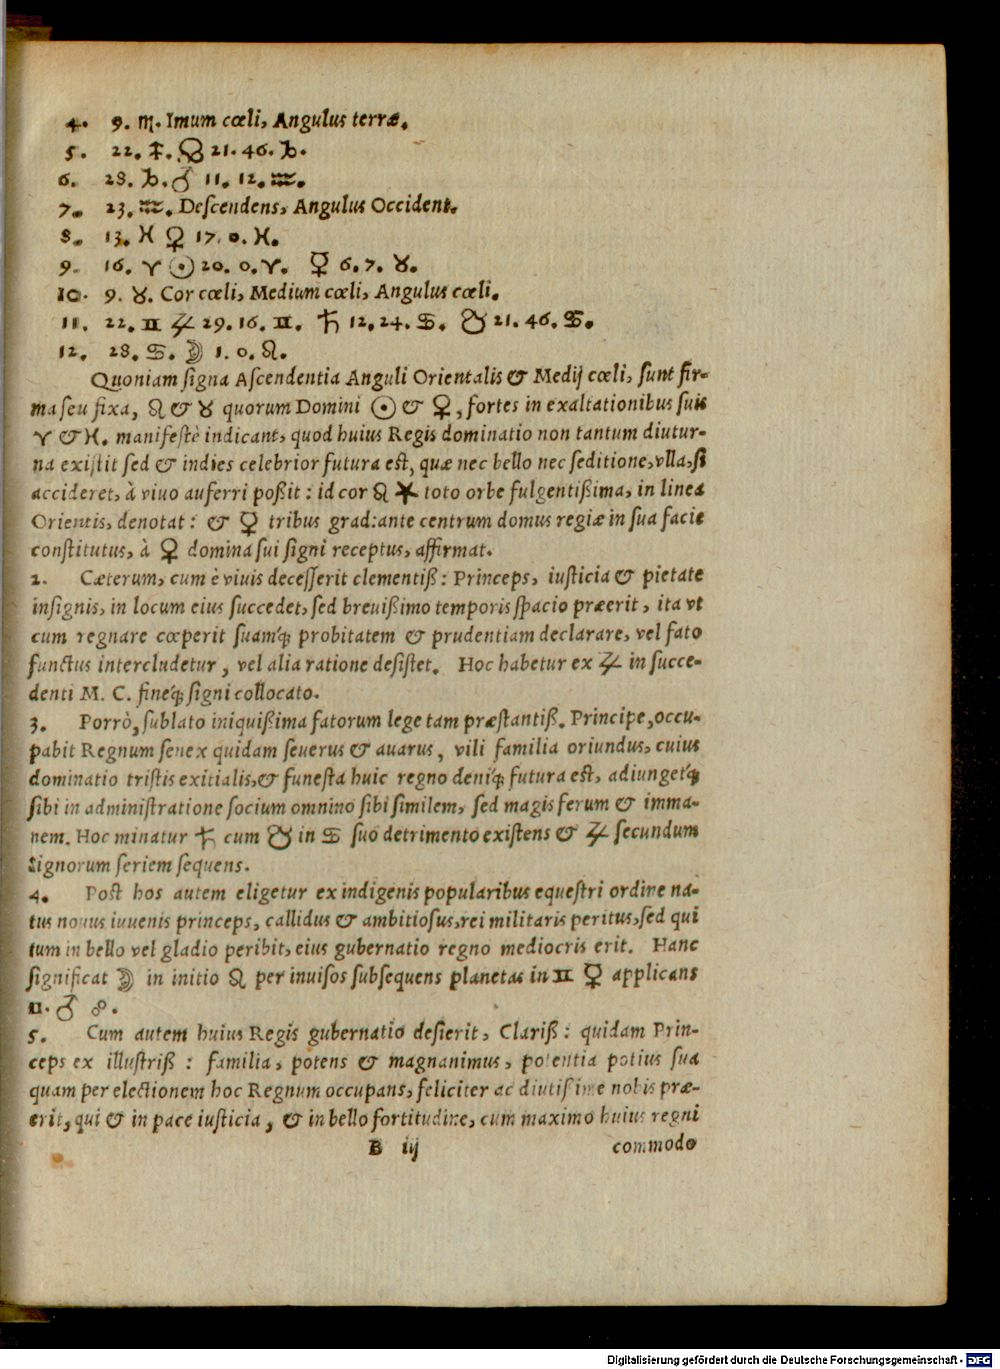 4. 9. ♏. Imum cœli, Angulus terræ.
5. 22. ♐. ☊ 21. 46. ♑.
6. 28. ♑. ♂ 11. 12. ♒.
7. 23. ♒. Descendens, Angulus Occident.
8. 13. ♓ ♀ 17. 0. ♓.
9. 16. ♈ ☉ 20. 0. ♈. ☿ 6. 7. ♉.
10. 9. ♉. Cor cœli, Medium cœli, Angulus cœli.
11. 22. ♊ ♃ 29. 16. ♊. ♄ 12. 24. ♋. ☋ 21. 46. ♋.
12. 28. ♋. ☽ 1. 0. ♌.
Quoniam signa Ascendentia Anguli Orientalis & Medij cœli, sunt fir-
ma seu fixa, ♌ & ♉ quorum Domini ☉ & ♀, fortes in exaltationibus suis
♈ & ♓. manifestè indicant, quod huius Regis dominatio non tantum diutur-
na existit sed & indies celebrior futura est, quæ nec bello nec seditione, vlla, si
accideret, à viuo auferri poßit : id cor ♌ ★ toto orbe fulgentißima, in linea
Orientis, denotat : & ☿ tribus grad: ante centrum domus regiæ in sua facie
constitutus, à ♀ domina sui signi receptus, affirmat.
2. Cæterum, cum è viuis decesserit clementiß : Princeps, iusticia & pietate
insignis, in locum eius succedet, sed breuißimo temporis spacio præerit, ita vt
cum regnare cœperit suamq́; probitatem & prudentiam declarare, vel fato
functus intercludetur, vel alia ratione desistet. Hoc habetur ex ♃ in succe-
denti M. C. fineq́; signi collocato.
3. Porrò, sublato iniquißima fatorum lege tam præstantiß. Principe, occu-
pabit Regnum senex quidam seuerus & auarus, vili familia oriundus, cuius
dominatio tristis exitialis, & funesta huic regno deniq́; futura est, adiungetq́;
sibi in administratione socium omnino sibi similem, sed magis ferum & imma-
nem. Hoc minatur ♄ cum ☋ in ♋ suo detrimento existens & ♃ secundum
signorum seriem sequens.
4. Post hos autem eligetur ex indigenis popularibus equestri ordine na-
tus nouus iuuenis princeps, callidus & ambitiosus, rei militaris peritus, sed qui
tum in bello vel gladio peribit, eius gubernatio regno mediocris erit. Hanc
significat ☽ in initio ♌ per inuisos subsequens planetas in ♊ ☿ applicans
♊. ♂ ☍.
5. Cum autem huius Regis gubernatio desierit, Clariß : quidam Prin-
ceps ex illustriß : familia, potens & magnanimus, potentia potius sua
quam per electionem hoc Regnum occupans, feliciter ac diutißime nobis præ-
erit, qui & in pace iusticia, & in bello fortitudine, cum maximo huius regni
B iij commodo
Digitalisierung gefördert durch die Deutsche Forschungsgemeinschaft - DFG